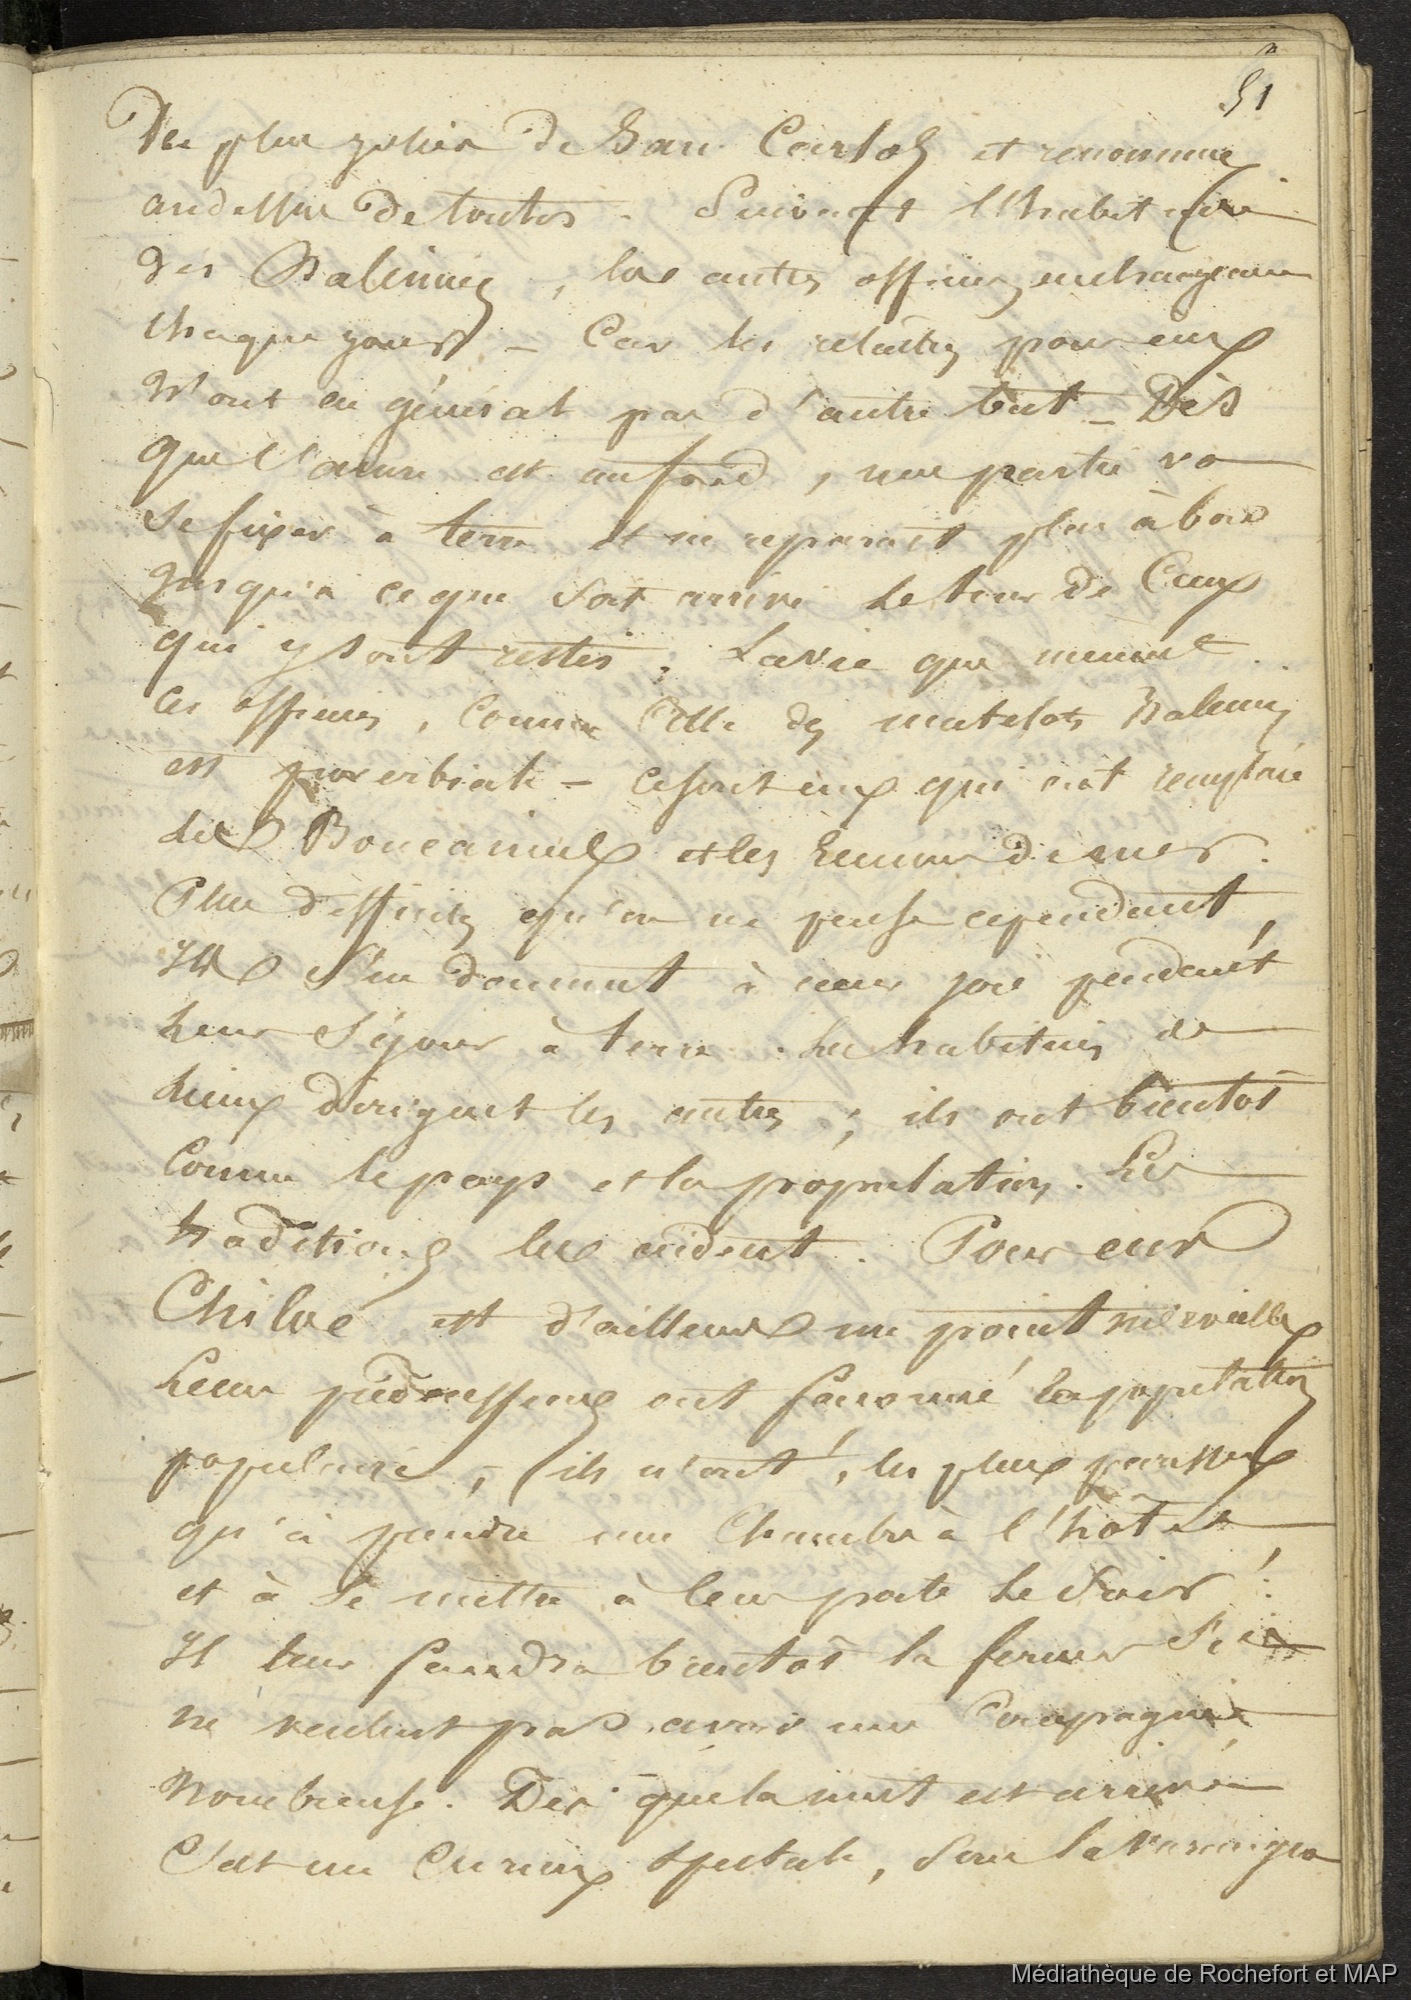 51
Des plus jolies de San Carlos et renommée
audessus de toutes. Suivant l'habitude
des Baleiniers, les autres officiers en changeaient
chaque jours. – Car les relâches pour eux
n'ont en général pas d'autre but – Dès
que l'ancre est au fond, une partie va
se fixer à terre et ne reparait plus à bord
jusqu'à ce que soit arrivé le tour de Ceux
qui y sont restés. La vie que mènent
ces officiers, comme Celle des matelots Baleiniers
est proverbiale – ce sont eux qui ont remplacé
les Boucaniers et les écumeurs de mer.
Plus difficiles qu'on ne pense cependant,
Ils s'en donnent à cœur joie pendant
leur séjour à terre. Les habitués de
lieux dirigent les autres; ils ont bientôt
Connu le pays et la population. Les
traditions les aident. Pour eux
Chiloé est d'ailleurs un point merveilleux
Leurs prédécesseurs ont façonné la population
populaire; (ils n'ont, les plus paresseux
qu'à prendre une Chambre à l'hôtel,
et à se mettre à leur porte le soir!
Il leur faudra bientôt la fermer s'ils
ne veulent pas avoir une Compagnie
Nombreuse. Dès que la nuit est arrivée
C'est un Curieux spectacle, sous la varangue
Médiathèque de Rochefort et MAP